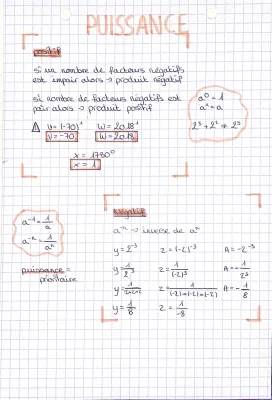 PUISSANCE
positif
si un nombre de facteurs négatifs
est impair alors → produit négatif
si nombre de facteurs négatifs est
pair alors → produit positif
a⁰ = 1
a¹ = a
2³ + 2² ≠ 2⁵
⚠ V = (-70)¹ W = 20.18¹
V = -70 W = 20.18
x = 1780⁰
x = 1
a⁻¹ = 1/a
a⁻ⁿ = 1/aⁿ
puissance =
prioritaire
Négatif
a⁻ⁿ → inverse de aⁿ
y = 2⁻³ z = (-2)⁻³ A = -2⁻³
y = 1/2³ z = 1/(-2)³ A = -1/2³
y = 1/2×2×2 z = 1/(-2)×(-2)×(-2) A = -1/8
y = 1/8 z = 1/-8